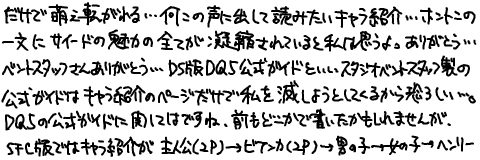 だけで萌え転がれる…何この声に出して読みたいキャラ紹介…ホントこの
一文にサイードの魅力の全てが凝縮されていると私は思うよ。ありがとう…
ベントスタッフさんありがとう…DS版DQ5公式ガイドといい、スタジオベントスタッフ製の
公式ガイドはキャラ紹介のページだけで私を滅しようとしてくるから恐ろしい…。
DQ5の公式ガイドに関してはですね、前もどこかで書いたかもしれませんが、
SFC版ではキャラ紹介が主人公(2P)→ビアンカ(2P)→男の子→女の子→ヘンリー